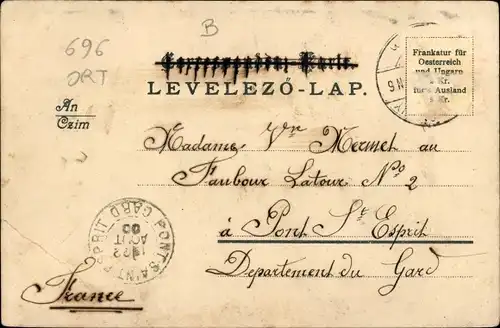 B
696
ORT
Correspondenz-Karte.
LEVELEZŐ-LAP.
Frankatur für
Oesterreich
und Ungarn
Kr.
für's Ausland
5 Kr.
An
Czim
Madame Vve Mermet au
Faubour Latour No 2
à Pont St Esprit
Departement du Gard
France
PONT-SAINT-ESPRIT
GARD
12
AOUT
00